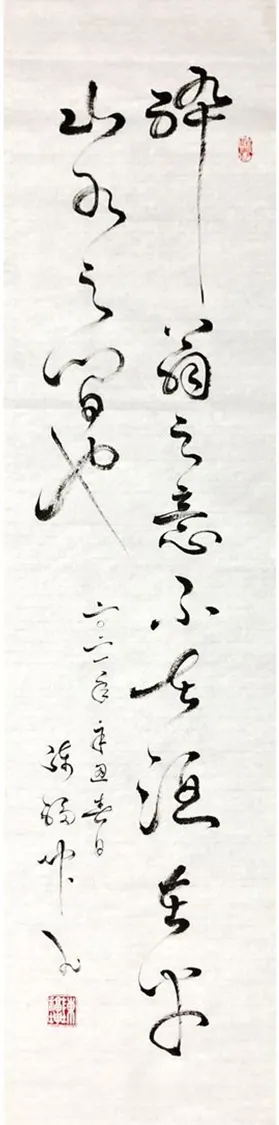 醉翁之意不在酒在乎
山水之間也
二〇二一年辛丑春日